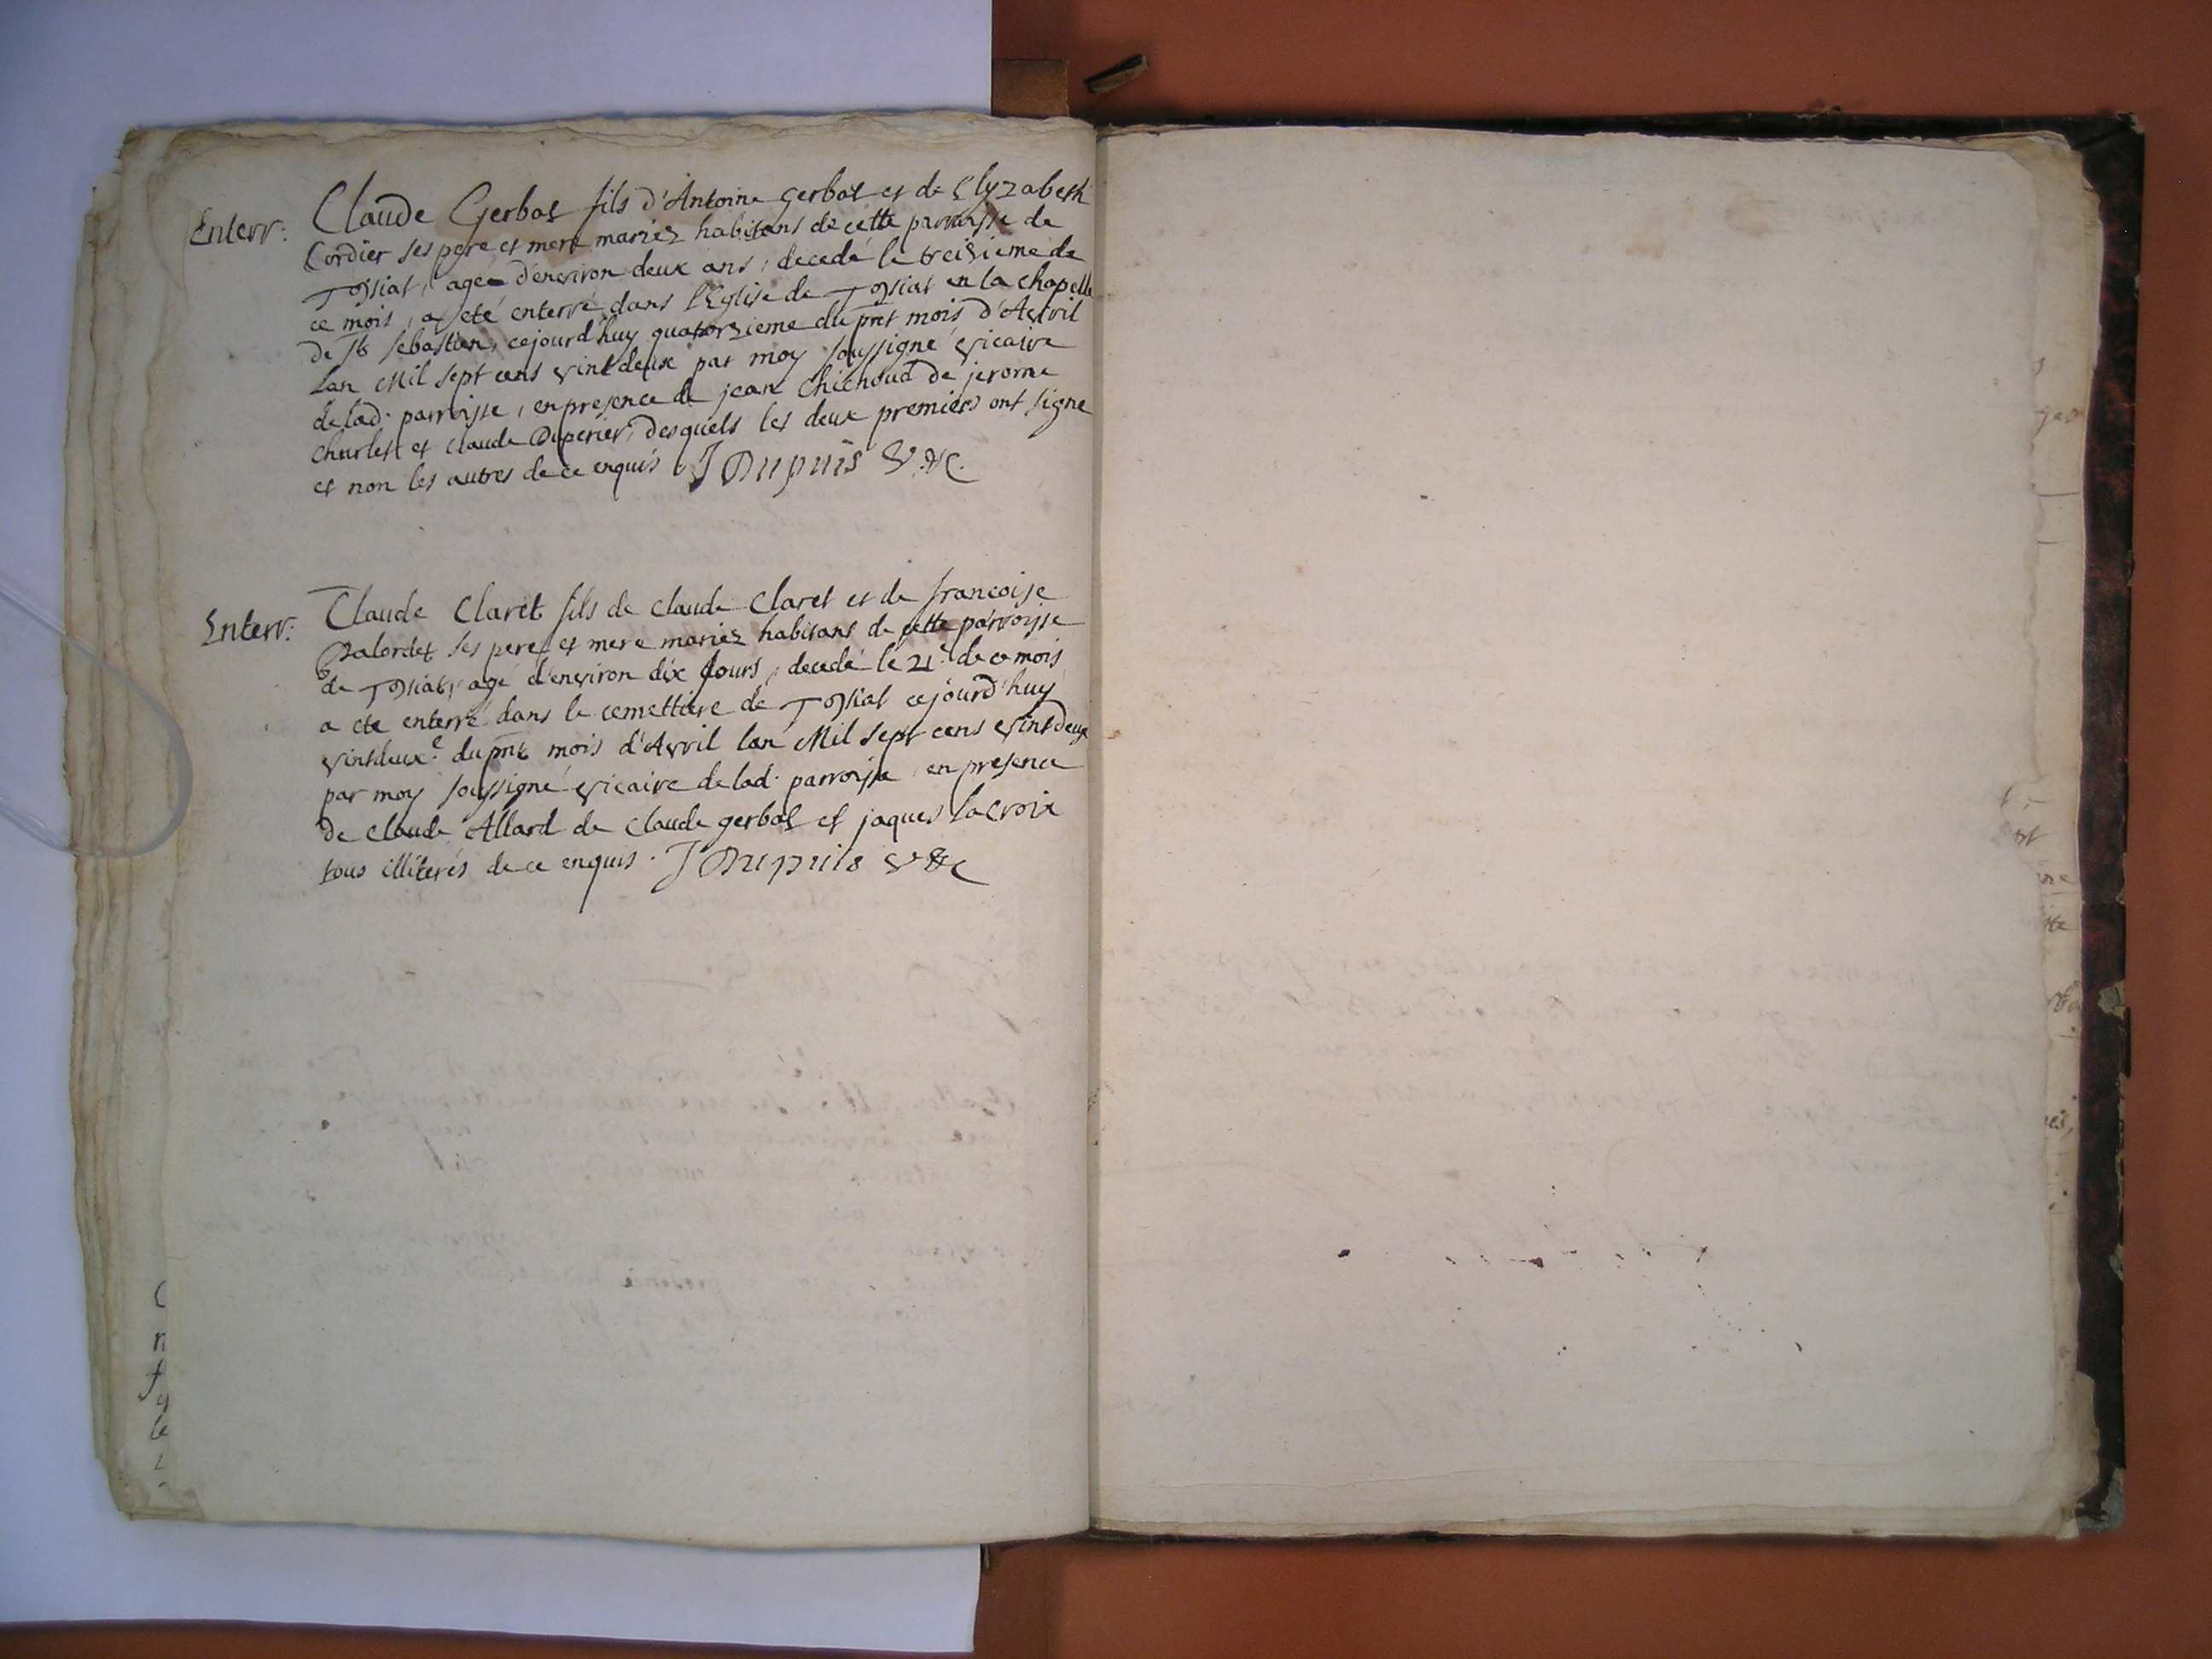 Enterr: Claude Gerbat fils d'Antoine gerbat et de Elyzabeth
Cordier ses pere et mere mariez habitans de cette parroisse de
Tossiat, agee d'environ deux ans, decedé le treisieme de
ce mois, a eté enterré dans l'Eglise de Tossiat en la chapelle
de St Sebastien, cejourd'huy quatorzieme du pret mois d'Avril
Lan Mil sept cens vint deux par moy soussigné vicaire
de lad. parroisse, en presence de jean Chichoud de jerome
et Claude Duperier, desquels les deux premiers ont signe
et non les autres de ce enquis J Dupuis
Enterr: Claude Claret fils de Claude Claret et de francoise
ses pere et mere mariez habitans de cette parroisse
de Tossiat, agé d'environ dix jours, decedé le 21e de ce mois
a ete enterré dans le cemettiere de Tossiat cejourd'huy
vintdeux.e du pnt mois d'Avril lan Mil sept cens vint deux
par moy soussigné vicaire de lad. parroisse en presence
de Claude Allard de Claude gerbat et jaques Lacroix
tous illiterés de ce enquis. J Dupuis